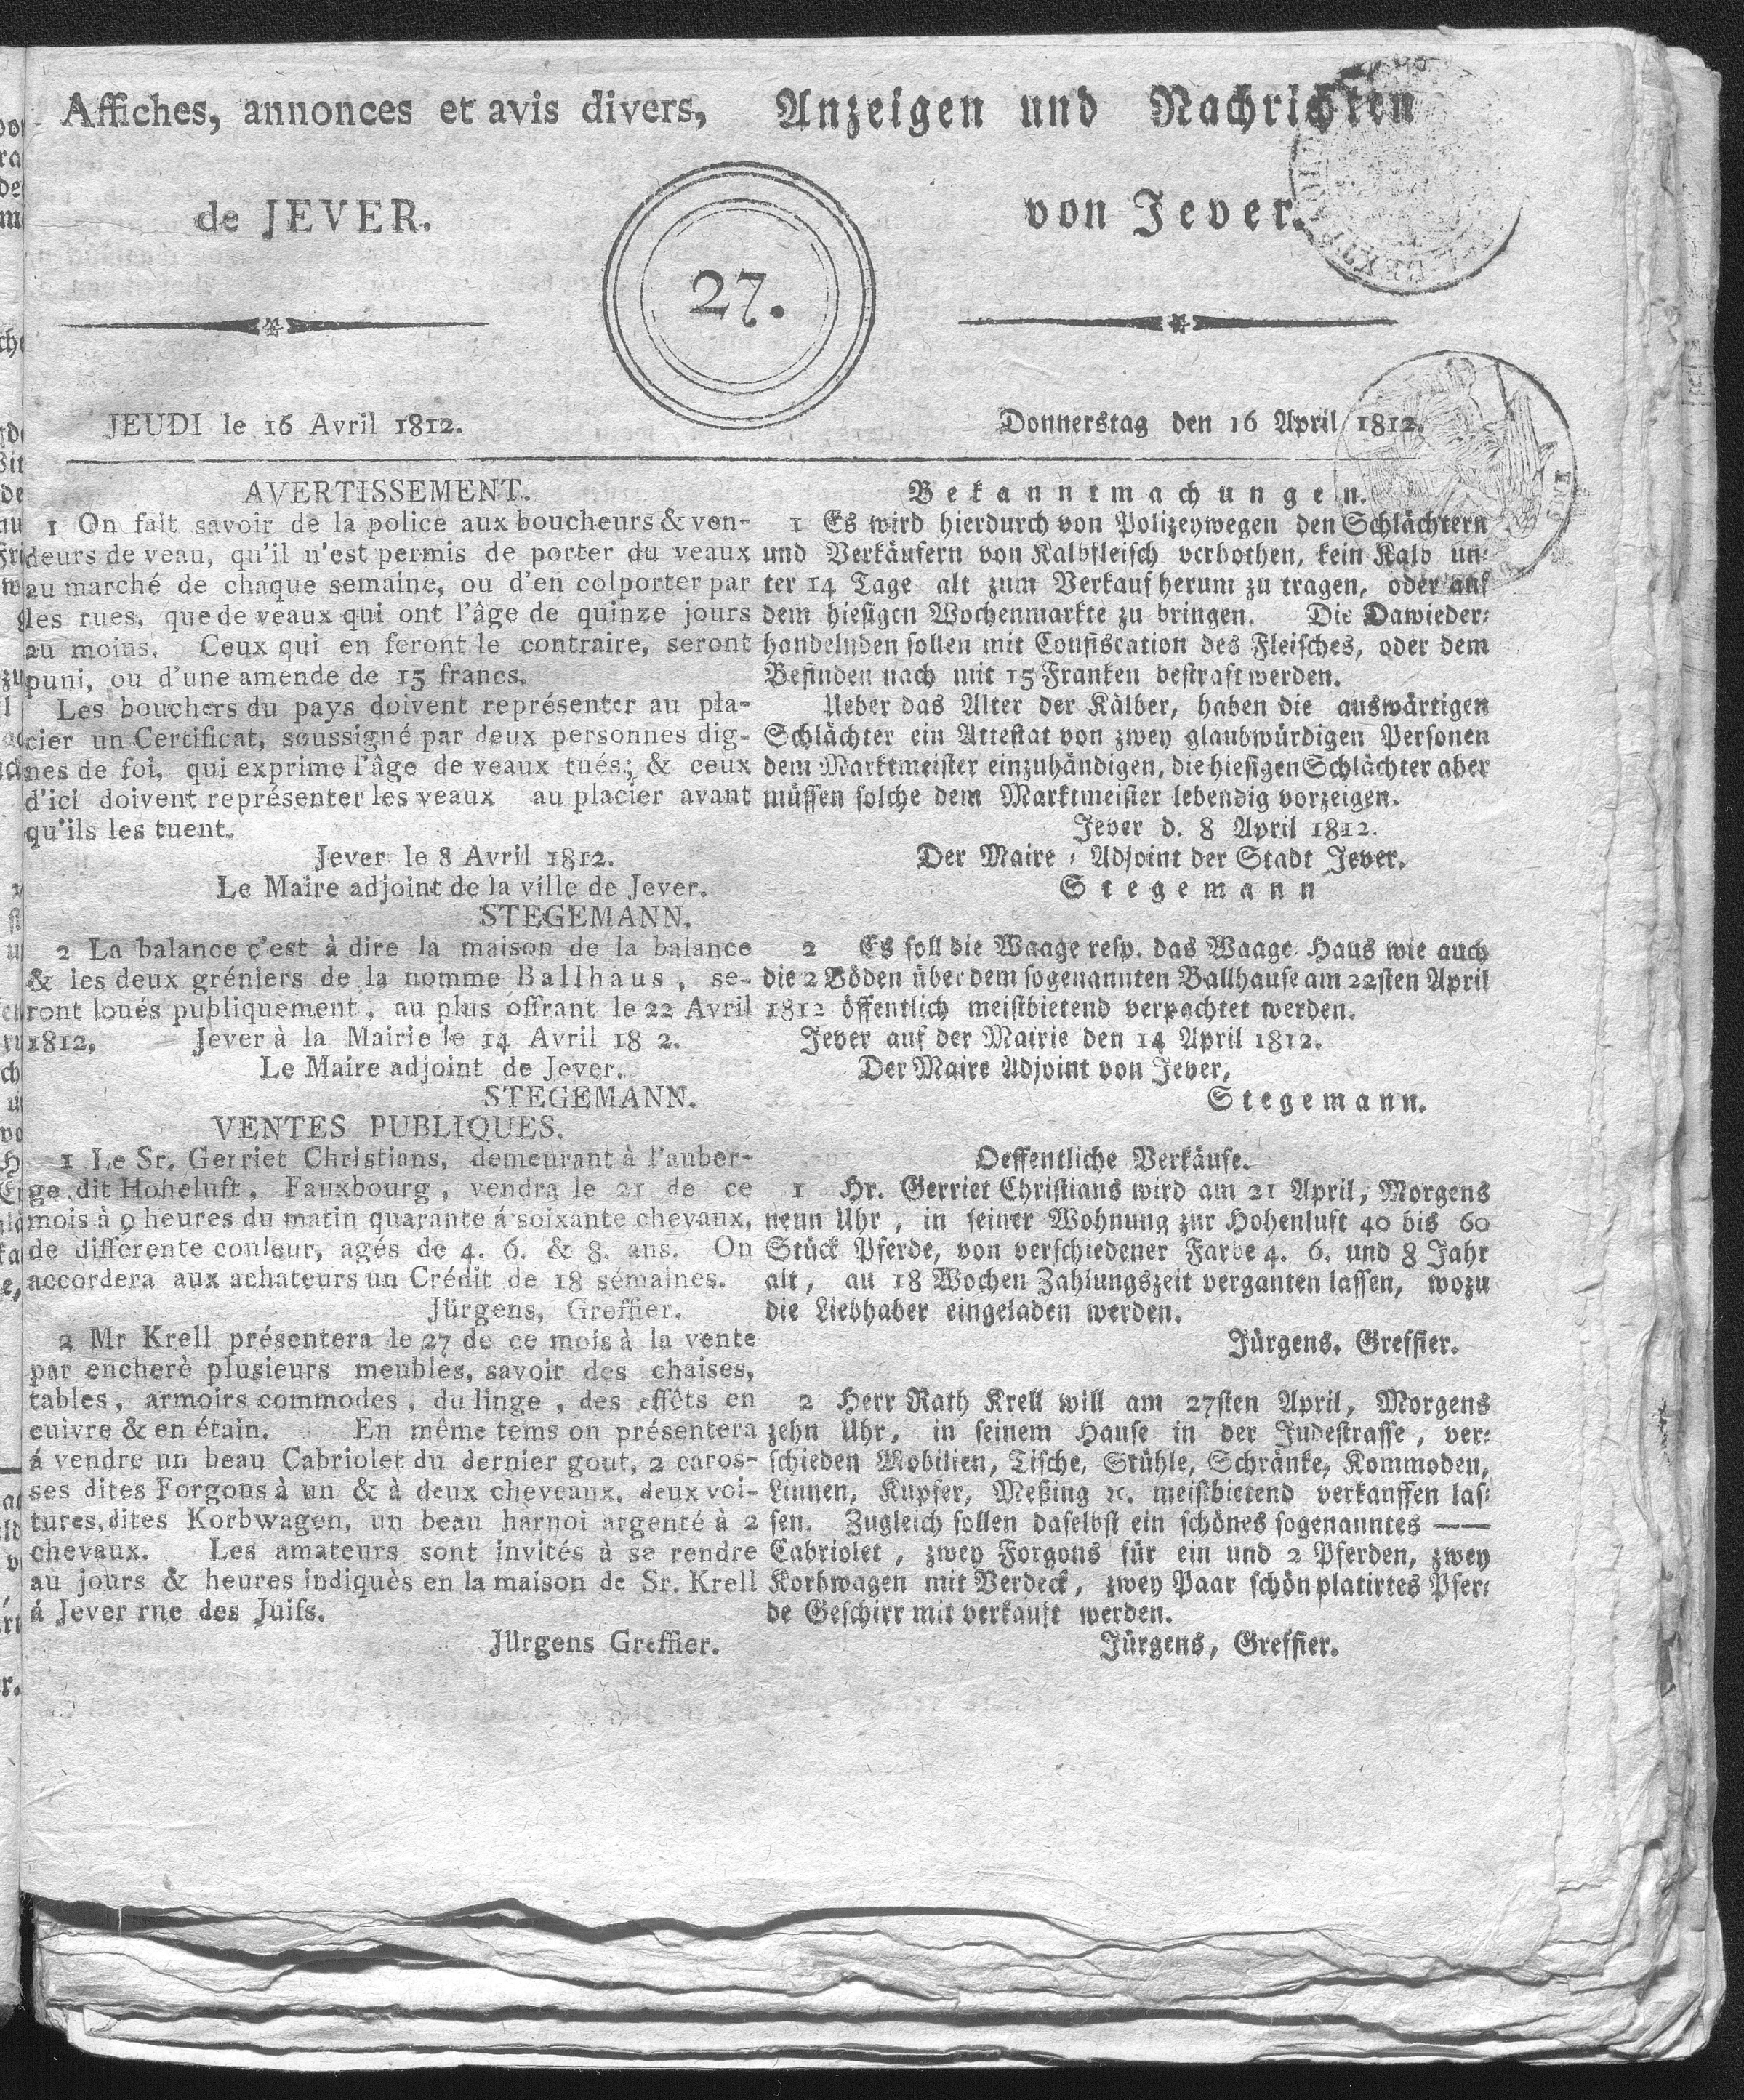 Affiches, annonces et avis divers,
de JEVER.
27.
Anzeigen und Nachrichten
von Jever.
JEUDI le 16 Avril 1812.
Donnerstag den 16 April 1812.
AVERTISSEMENT.
1 On fait savoir de la police aux boucheurs & ven-
deurs de veau, qu'il n'est permis de porter du veaux
au marché de chaque semaine, ou d'en colporter par
les rues, que de veaux qui ont l'âge de quinze jours
au moins. Ceux qui en feront le contraire, seront
puni, ou d'une amende de 15 francs.
Les bouchers du pays doivent représenter au pla-
cier un Certificat, soussigné par deux personnes dig-
nes de foi, qui exprime l'âge de veaux tués; & ceux
d'ici doivent représenter les veaux au placier avant
qu'ils les tuent.
Jever le 8 Avril 1812.
Le Maire adjoint de la ville de Jever.
STEGEMANN.
2 La balance c'est à dire la maison de la balance
& les deux gréniers de la nomme Ballhaus, se-
ront loués publiquement, au plus offrant le 22 Avril
1812. Jever à la Mairie le 14 Avril 18 2.
Le Maire adjoint de Jever.
STEGEMANN.
VENTES PUBLIQUES.
1 Le Sr. Gerriet Christians, demeurant à l'auber-
ge dit Hoheluft, Fauxbourg, vendra le 21 de ce
mois à 9 heures du matin quarante á soixante chevaux,
de différente couleur, agés de 4. 6. & 8. ans. On
accordera aux achateurs un Crédit de 18 sémaines.
Jürgens, Greffier.
2 Mr Krell présentera le 27 de ce mois à la vente
par encherè plusieurs meubles, savoir des chaises,
tables, armoirs commodes, du linge, des effêts en
cuivre & en étain. En même tems on présentera
á vendre un beau Cabriolet du dernier gout, 2 caros-
ses dites Forgons à un & à deux cheveaux, deux voi-
tures, dites Korbwagen, un beau harnoi argenté à 2
chevaux. Les amateurs sont invités à se rendre
au jours & heures indiquès en la maison de Sr. Krell
á Jever rne des Juifs.
Jürgens Greffier.
Bekanntmachungen.
1 Es wird hierdurch von Polizeywegen den Schlächtern
und Verkäufern von Kalbfleisch verbothen, kein Kalb un-
ter 14 Tage alt zum Verkauf herum zu tragen, oder auf
dem hiesigen Wochenmarkte zu bringen. Die Dawieder-
handelnden sollen mit Confiscation des Fleisches, oder dem
Befinden nach mit 15 Franken bestraft werden.
Ueber das Alter der Kälber, haben die auswärtigen
Schlächter ein Attestat von zwey glaubwürdigen Personen
dem Marktmeister einzuhändigen, die hiesigen Schlächter aber
müssen solche dem Marktmeister lebendig vorzeigen.
Jever d. 8 April 1812.
Der Maire-Adjoint der Stadt Jever.
Stegemann
2 Es soll die Waage resp. das Waage Haus wie auch
die 2 Böden über dem sogenannten Ballhause am 22sten April
1812 öffentlich meistbietend verpachtet werden.
Jever auf der Mairie den 14 April 1812.
Der Maire Adjoint von Jever,
Stegemann.
Oeffentliche Verkäufe.
1 Hr. Gerriet Christians wird am 21 April, Morgens
neun Uhr, in seiner Wohnung zur Hohenluft 40 bis 60
Stück Pferde, von verschiedener Farbe 4. 6. und 8 Jahr
alt, au 18 Wochen Zahlungszeit verganten lassen, wozu
die Liebhaber eingeladen werden.
Jürgens. Greffier.
2 Herr Rath Krell will am 27sten April, Morgens
zehn Uhr, in seinem Hause in der Judestrasse, ver-
schieden Mobilien, Tische, Stühle, Schränke, Kommoden,
Linnen, Kupfer, Meßing ꝛc. meistbietend verkauffen las-
sen. Zugleich sollen daselbst ein schönes sogenanntes ——
Cabriolet, zwey Forgons für ein und 2 Pferden, zwey
Korbwagen mit Verdeck, zwey Paar schön platirtes Pfer-
de Geschirr mit verkauft werden.
Jürgens, Greffier.